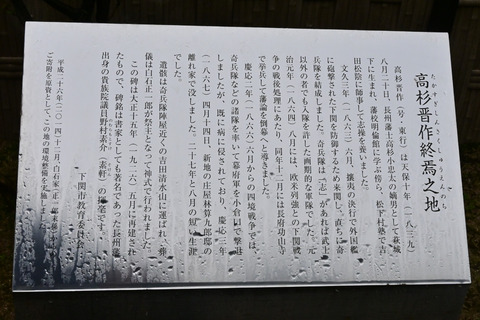 たかすぎしんさくしゅうえんのち
高杉晋作終焉之地
高杉晋作（号・東行）は天保十年（一八三九）
八月二十日、長州藩士高杉小忠太の嫡男として萩城
下に生まれ、藩校明倫館に学ぶ傍ら、松下村塾で吉
田松陰に師事して志操を養いました。
文久三年（一八六三）六月、攘夷の決行で外国艦
に砲撃された下関を防御するため来関し、直ちに奇
兵隊を結成しました。奇兵隊は「志」があれば武士
以外の者でも入隊を許した画期的な軍隊でした。元
治元年（一八六四）八月には、欧米列強との下関戦
争の戦後処理にあたり、同年十二月には長府功山寺
で挙兵して藩論を倒幕へと導きました。
慶応二年（一八六六）六月からの四境戦争では、
奇兵隊などの諸隊を率いて幕府軍を小倉口で撃退
しましたが、既に病に侵されており、慶応三年
（一八六七）四月十四日、新地の庄屋林算九郎邸の
離れ家で没しました。二十七年と八月の短い生涯
でした。
遺骸は奇兵隊陣屋近くの吉田清水山に運ばれ、葬
儀は白石正一郎が祭主となって神式で行われました。
この碑は大正十五年（一九二六）五月に再建され
たもので、碑銘は書家としても著名であった長州藩
出身の貴族院議員野村素介（素軒）の揮毫です。
下関市教育委員会
平成二十六年（二〇一四）十二月、白石家（正一郎末裔）
ご寄附を原資として、この地の環境整備を実施しました